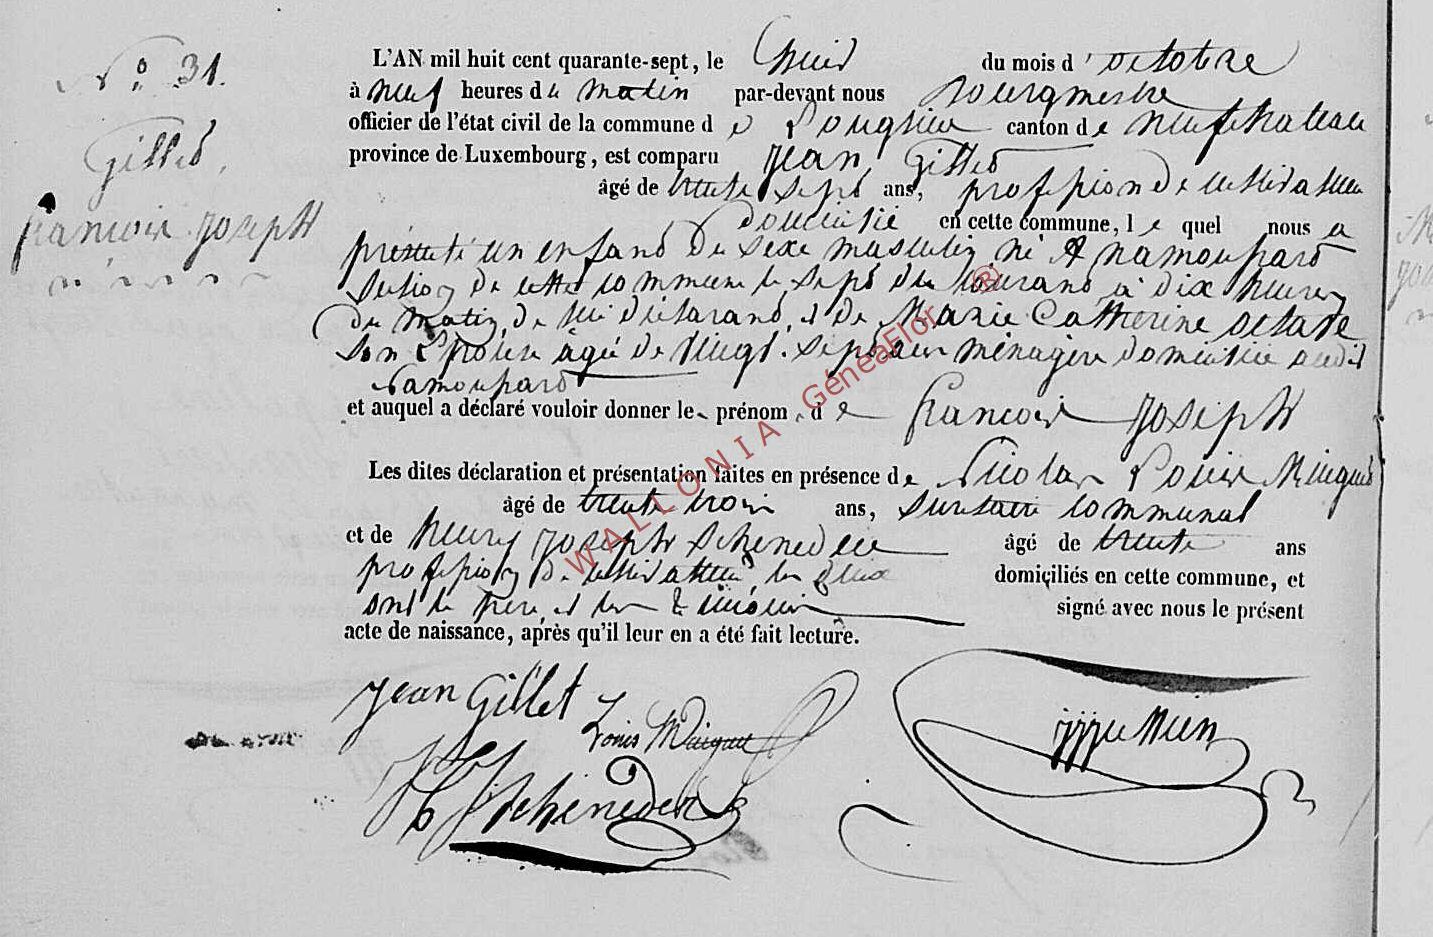 N° 31.
Gillet
François Joseph
L'AN mil huit cent quarante-sept, le huit du mois d'octobre
à neuf heures du matin par-devant nous Bourgmestre
officier de l'état civil de la commune de Longlier canton de Neufchateau
province de Luxembourg, est comparu Jean Gillet
âgé de trente sept ans, profession de cultivateur
domicilié en cette commune, lequel nous a
présenté un enfant du sexe masculin né A Namoussart
section de cette commune le sept du courant à dix heures
du matin, de lui déclarant, et de Marie Catherine
son Epouse âgée de vingt-sept ans ménagère domiciliée audit
Namoussart
et auquel a déclaré vouloir donner le prénom de François Joseph
Les dites déclaration et présentation faites en présence de Nicolas Louis Maigaut
âgé de trente trois ans, secrétaire communal
et de henry joseph Scheneder âgé de trente ans
profession de cultivateur, les deux domiciliés en cette commune, et
ont le père, et les témoins signé avec nous le présent
acte de naissance, après qu'il leur en a été fait lecture.
Jean Gillet
Louis Maigaut
Scheneder
WALLONIA GénéaFlor ®